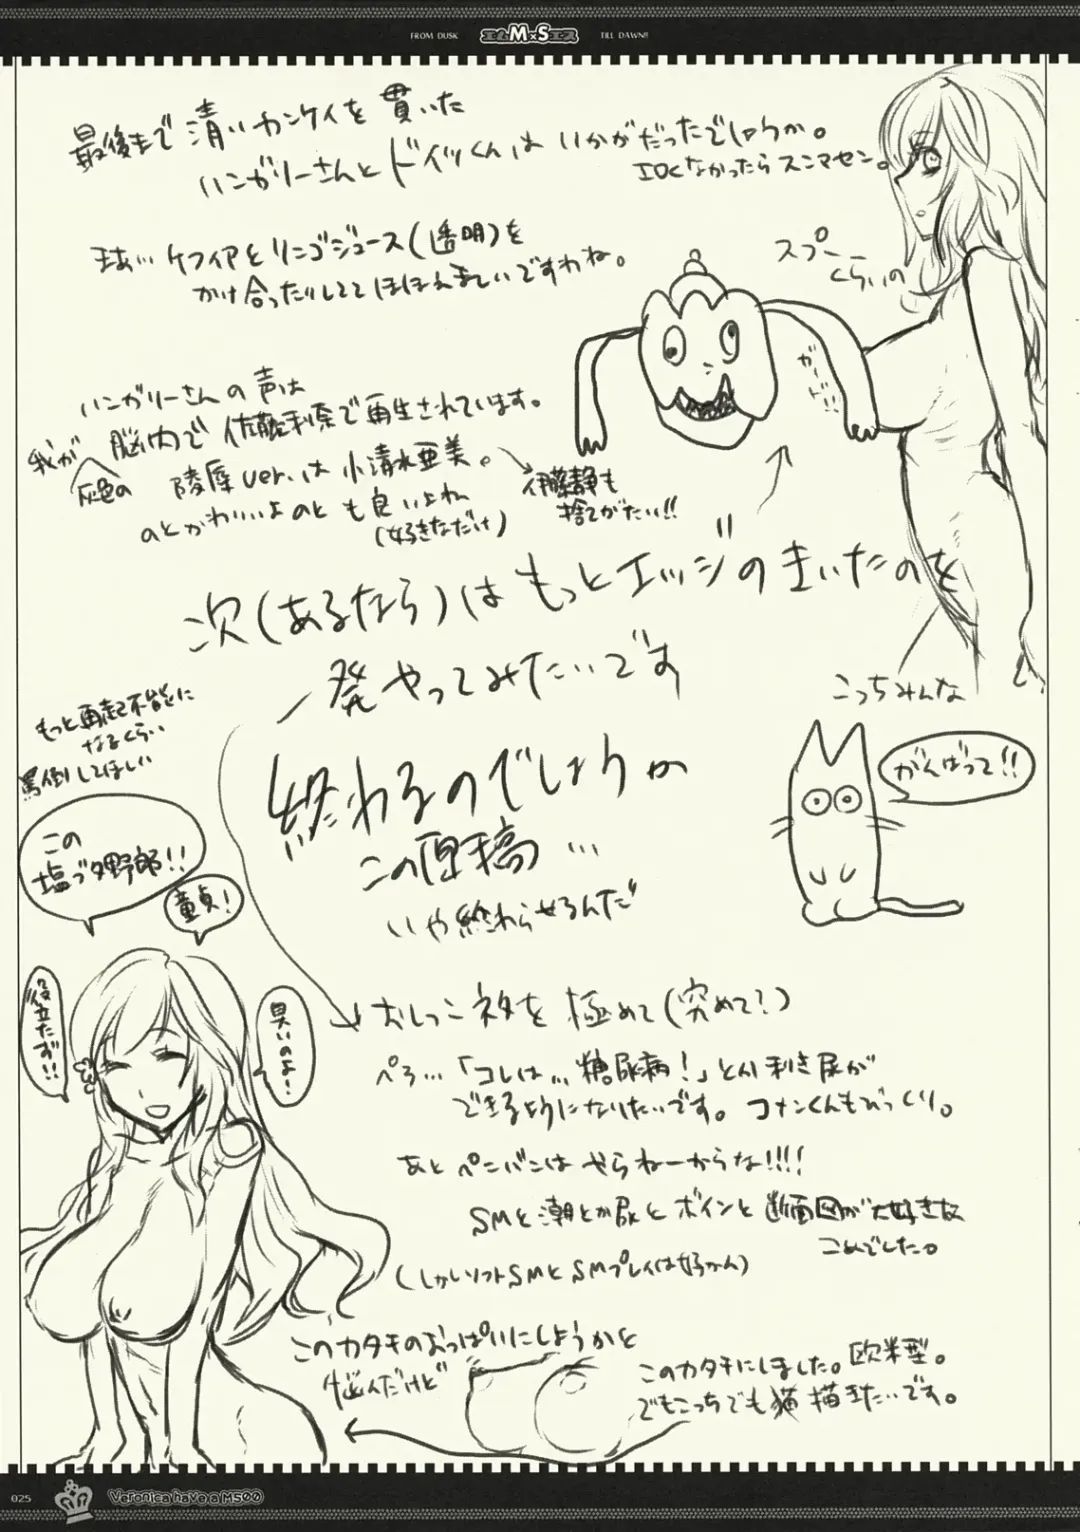 FROM DUSK
エムM×Sエス
TILL DAWN!!
最後まで清いカンケイを貫いた
ハンガリーさんとドイツくんは いかがだったでしょうか。
エロくなかったらスンマセン。
まあ… ケフィアとリンゴジュース(透明)を
かけ合ったりしててほほえましいですわね。
スプー
くらいの
ハンガリーさんの声は
我が
灰色の
脳内で 佐藤利奈で再生されています。
陵辱ver.は小清水亜美。
のとかわいいよのとも良いよね
(好きなだけ)
伊藤静も
捨てがたい!!
次(あるなら)は もっとエッジのきいたのを
一発やってみたいです
もっと再起不能に
なるくらい
罵倒してほしい
この
塩ブタ野郎!!
童貞!
役立たず!!
臭いのよ!
終わるのでしょうか
この原稿…
いや終わらせるんだ
こっちみんな
がんばって!!
おしっこネタを極めて(究めて?)
ペろ…「コレは…糖尿病!」とか利き尿が
できるようになりたいです。コナンくんもびっくり。
あと ペニバンは やらねーからな!!!!
SMと潮とか尿とボインと断面図が大好きな
こめでした。
(しかしソフトSMとSMプレイは好かん)
このカタチのおっぱいにしようかを
悩んだけど
このカタチにしました。欧米型。
でもこっちでも猫描きたいです。
025
Veronica have a M500